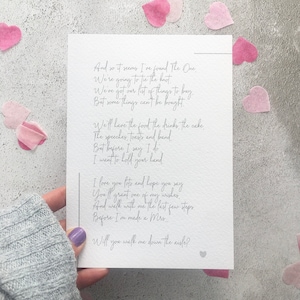 And so it seems I've found The One
We're going to tie the knot
We've got our list of things to buy
But some things can't be bought

We'll have the food the drinks the cake
The speeches, toasts and band
But before I say I do
I want to hold your hand

I love you lots and hope you say
You'll grant one of my wishes
And walk with me the last few steps
Before I'm made a Mrs

Will you walk me down the aisle?